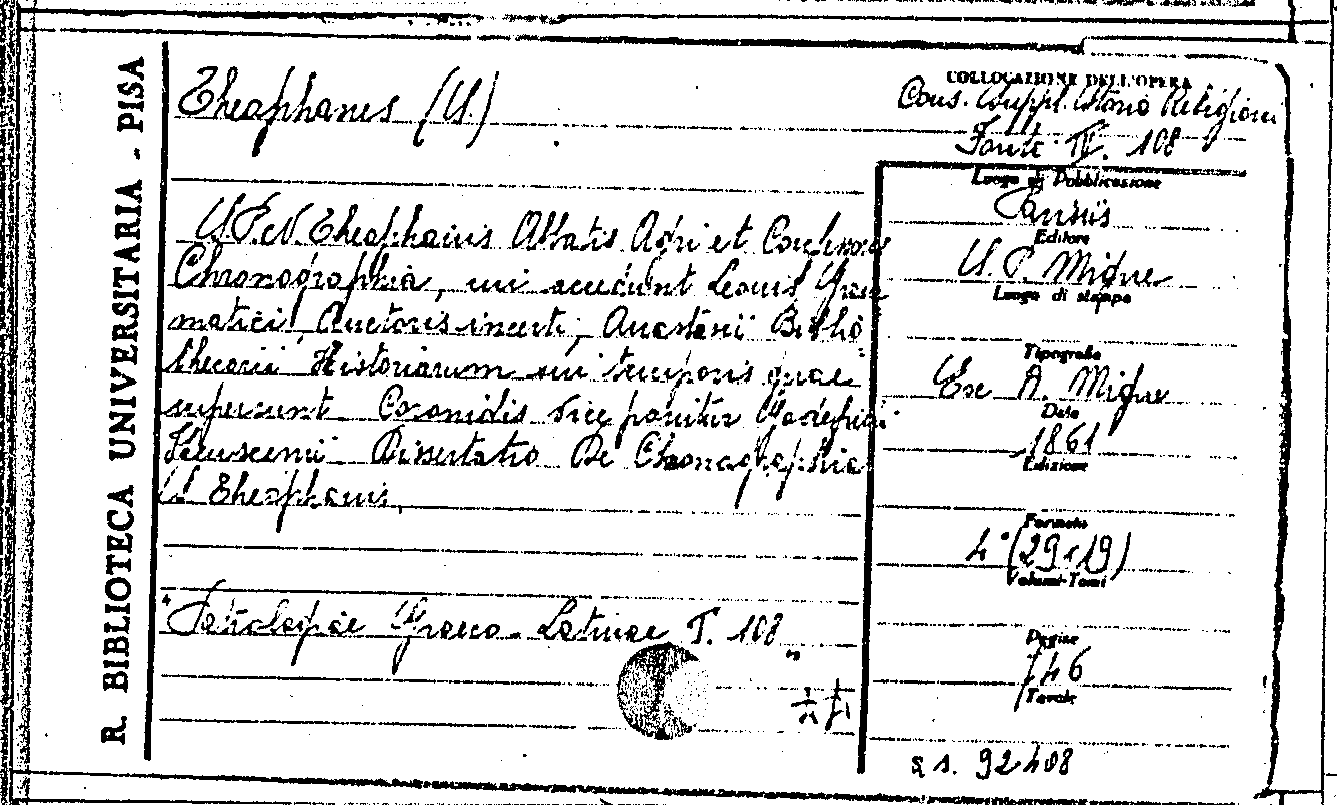 R. BIBLIOTECA UNIVERSITARIA - PISA
Theophanes (S.)
COLLOCAZIONE DELL'OPERA
Cons. Suppl. Storia Religioni
Fonti IV. 108
S. P. N. Theophanis Abbatis Agri et Confessoris
Chronographia, cui accedunt Leonis Gram
matici, Auctoris incerti, Anastasii Biblio
thecarii Historiarum sui temporis quae
supersunt. Coronidis vice ponitur
Dissertatio De Chronographia
S. Theophanis.
"Patrologiae Graeco-Latinae T. 108"
Luogo di Pubblicazione
Parisiis
Editore
J. P. Migne
Luogo di stampa
Tipografia
Ex A. Migne
Data
1861
Edizione
Formato
4° (29x19)
Volumi-Tomi
Pagine
746
Tavole
92408